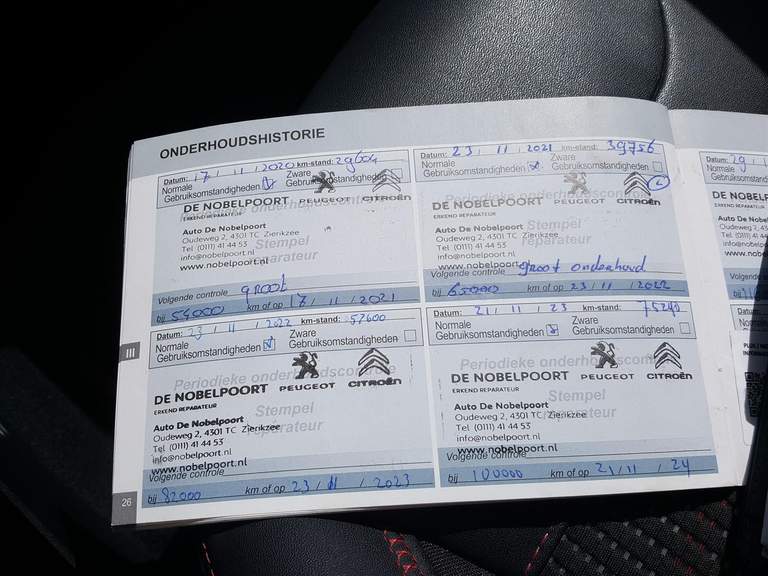 ONDERHOUDSHISTORIE
Datum: 17 / 11 / 2020 km-stand: 29604
Normale Gebruiksomstandigheden
Zware Gebruiksomstandigheden
Periodieke onderhoudscontrole
DE NOBELPOORT
ERKEND REPARATEUR
PEUGEOT CITROËN
Auto De Nobelpoort
Oudeweg 2, 4301 TC Zierikzee
Tel (0111) 41 44 53
info@nobelpoort.nl
www.nobelpoort.nl
Stempel reparateur
Volgende controle groot
bij 54000 km of op 17 / 11 / 2021
Datum: 23 / 11 / 2021 km-stand: 39756
Normale Gebruiksomstandigheden
Zware Gebruiksomstandigheden
Periodieke onderhoudscontrole
DE NOBELPOORT
ERKEND REPARATEUR
PEUGEOT CITROËN
Auto De Nobelpoort
Oudeweg 2, 4301 TC Zierikzee
Tel (0111) 41 44 53
info@nobelpoort.nl
www.nobelpoort.nl
Stempel reparateur
Volgende controle groot onderhoud
bij 65000 km of op 23 / 11 / 2022
Datum: 23 / 11 / 2022 km-stand: 57600
Normale Gebruiksomstandigheden
Zware Gebruiksomstandigheden
Periodieke onderhoudscontrole
DE NOBELPOORT
ERKEND REPARATEUR
PEUGEOT CITROËN
Auto De Nobelpoort
Oudeweg 2, 4301 TC Zierikzee
Tel (0111) 41 44 53
info@nobelpoort.nl
www.nobelpoort.nl
Stempel reparateur
Volgende controle
bij 82000 km of op 23 / 11 / 2023
Datum: 21 / 11 / 23 km-stand:
Normale Gebruiksomstandigheden
Zware Gebruiksomstandigheden
Periodieke onderhoudscon
DE NOBELPOORT
ERKEND REPARATEUR
PEUGEOT CITROËN
Auto De Nobelpoort
Oudeweg 2, 4301 TC Zierikzee
Tel (0111) 41 44 53
info@nobelpoort.nl
www.nobelpoort.nl
Stempel reparateur
Volgende controle
bij 100000 km of op 21 / 11 / 24
III
26
Datum: 29
Normale
Gebruiksom
DE NOBEL
Auto De Nobel
Oudeweg 2
Tel (0111) 41
info@nobelp
www.nobe
Volgende
bij
Datum:
Normale